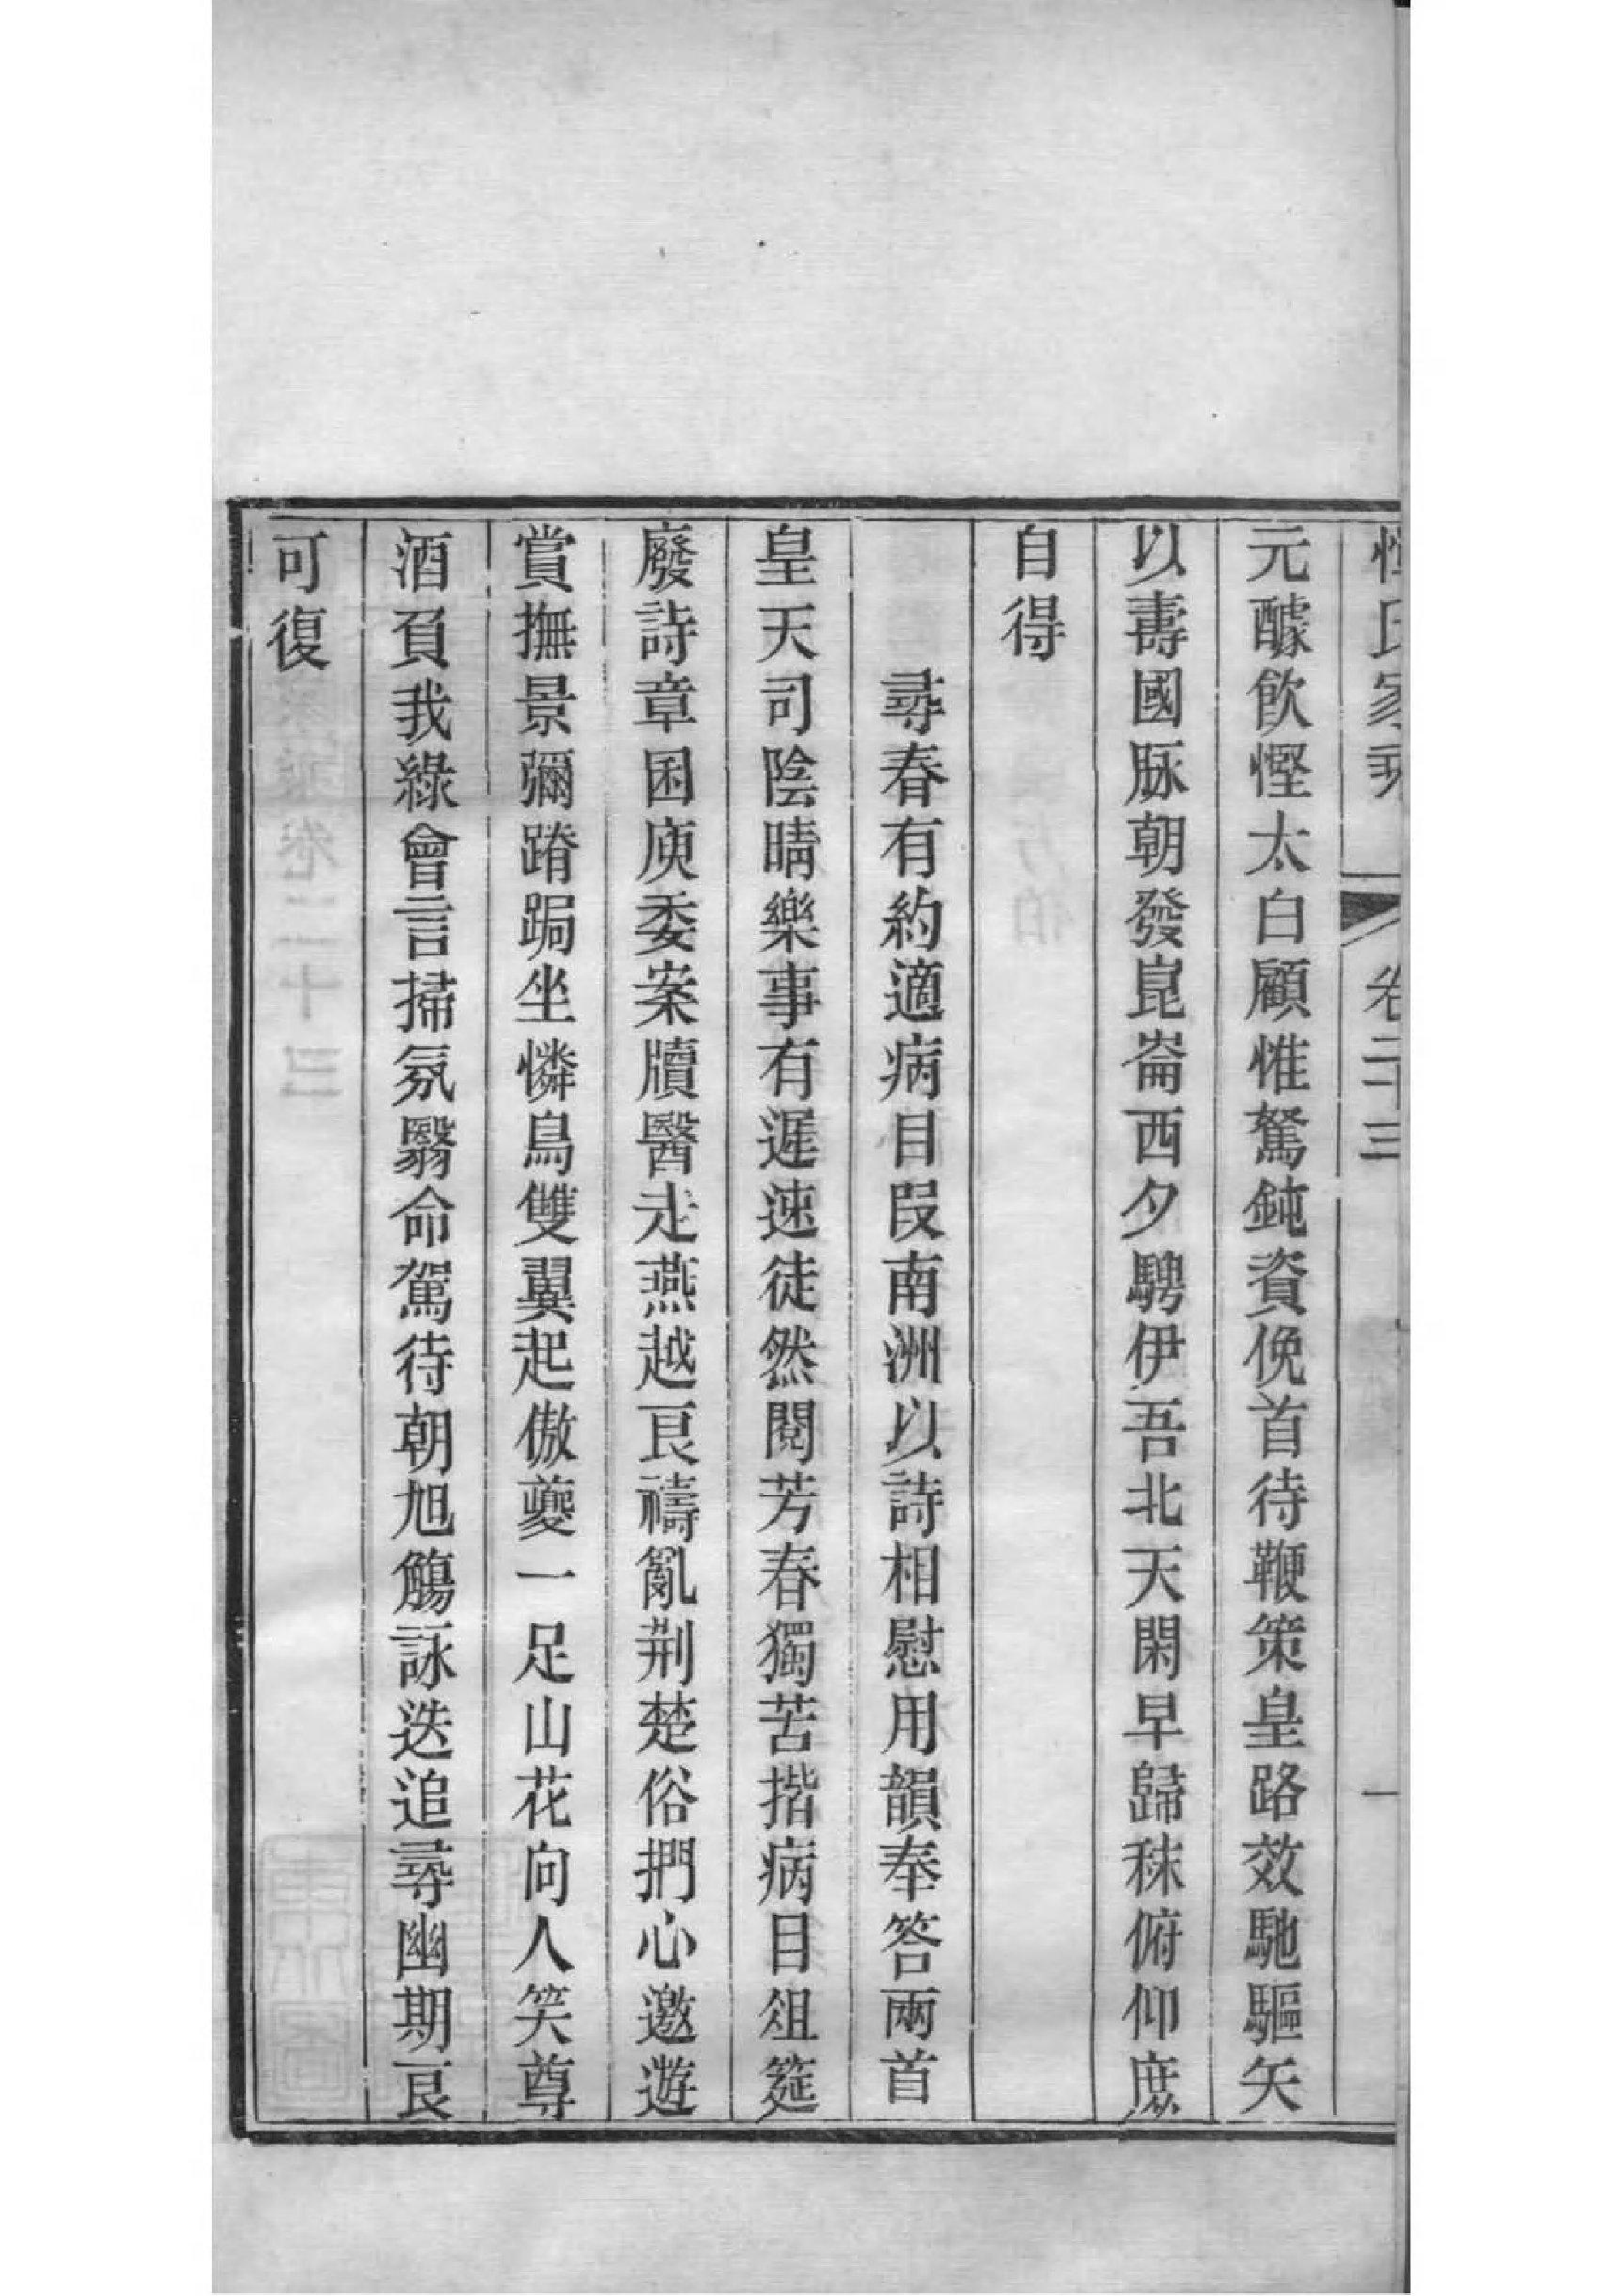 惲氏家乘 卷二十三 一
元醵飲慳太白顧惟駑鈍資俛首待鞭策皇路效馳驅矢
以壽國脈朝發崑崙西夕騁伊吾北天閑早歸秣俯仰庶
自得
尋春有約適病目叚南洲以詩相慰用韻奉答兩首
皇天司陰晴樂事有遲速徒然閱芳春獨苦揩病目俎筵
廢詩章困庾委案牘醫走燕越艮禱亂荆楚俗捫心邀遊
賞撫景彌蹐跼坐憐鳥雙翼起傲夔一足山花向人笑尊
酒負我綠會言掃氛翳命駕待朝旭觴詠迭追尋幽期艮
可復